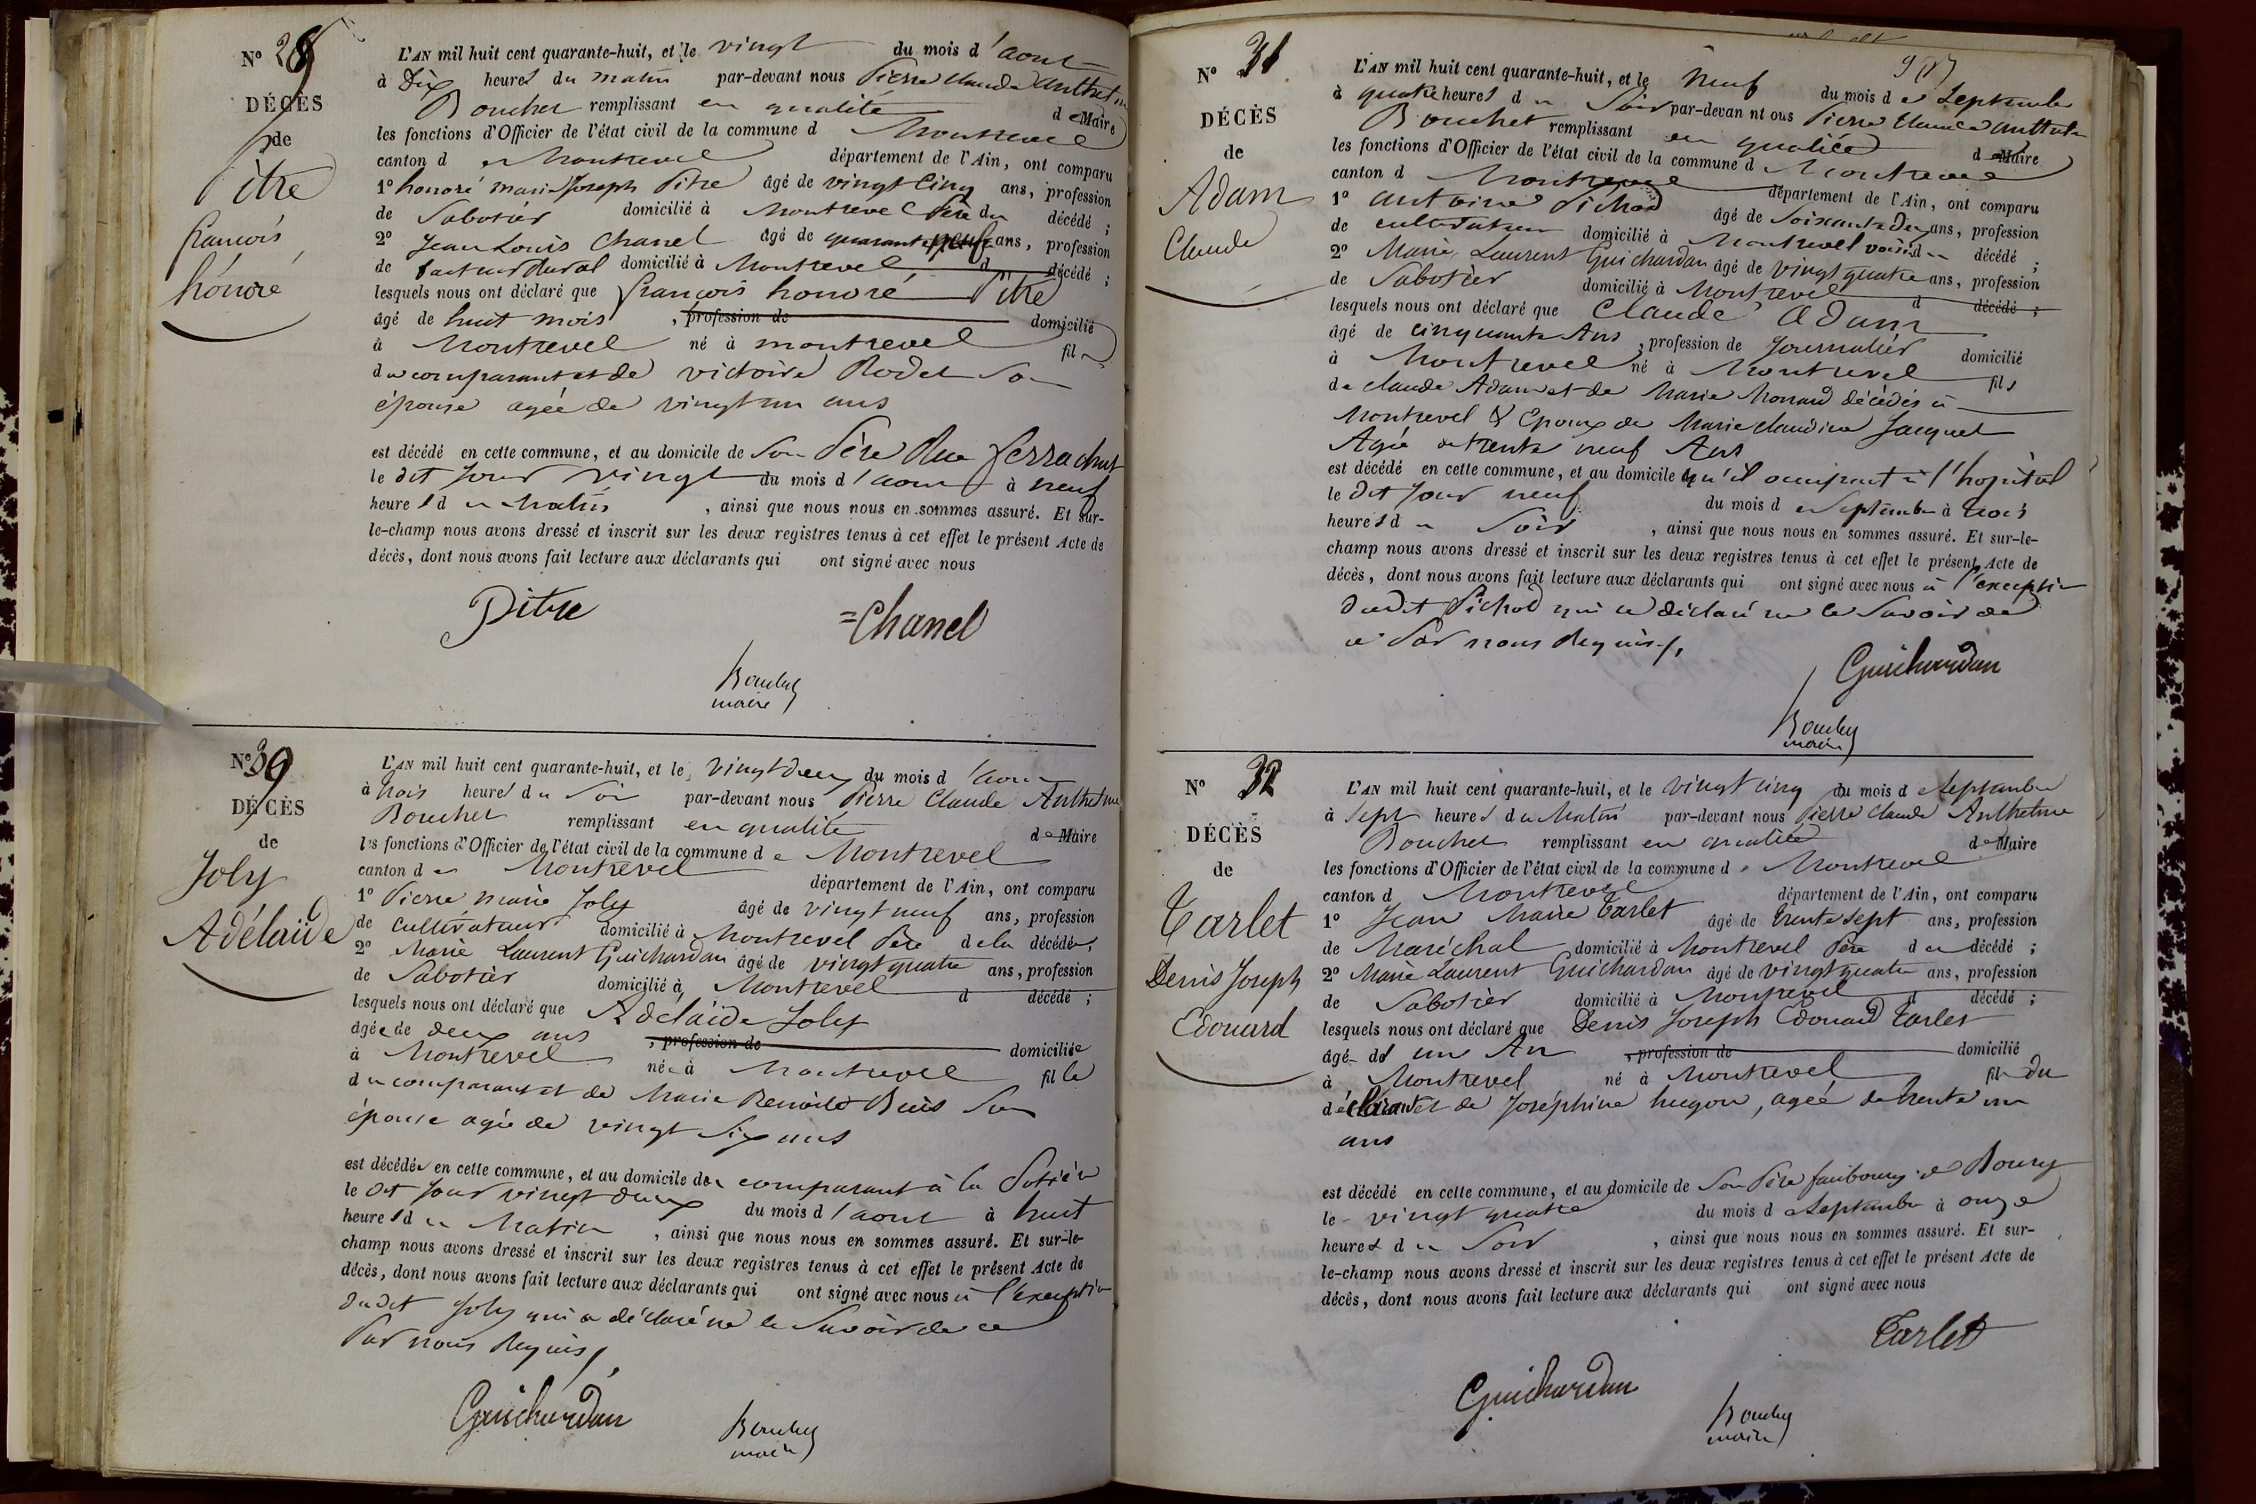 Nº 29
DÉCÈS
de
Pitre
françois
honoré
L'AN mil huit cent quarante-huit, et le vingt du mois d'aout
à Dix heures du matin par-devant nous Pierre Claude Anthelme
Bouchet remplissant en qualité de Maire
les fonctions d'Officier de l'état civil de la commune d Montrevel
canton de Montrevel département de l'Ain, ont comparu
1º honoré marie Joseph Pitre âgé de vingt Cinq ans, profession
de Sabotier domicilié à Montrevel Père du décédé ;
2º Jean Louis Chanel âgé de quarante neuf ans, profession
de facteur Rural domicilié à Montrevel d décédé ;
lesquels nous ont déclaré que françois honoré Pitre
âgé de huit mois , profession de domicilié
à Montrevel né à montrevel fils
du comparant et de victoire Rodet Son
épouse agée de vingt un ans
est décédé en cette commune, et au domicile de Son Père Rue
le dit Jour vingt du mois d'aout à neuf
heures du Matin , ainsi que nous nous en sommes assuré. Et sur-
le-champ nous avons dressé et inscrit sur les deux registres tenus à cet effet le présent Acte de
décès, dont nous avons fait lecture aux déclarants qui ont signé avec nous
Pitre =Chanel
Bouchet
maire
Nº 30
DÉCÈS
de
Joly
Adélaïde
L'AN mil huit cent quarante-huit, et le vingt deux du mois d'aout
à trois heures du Soir par-devant nous Pierre Claude Anthelme
Bouchet remplissant en qualité de Maire
les fonctions d'Officier de l'état civil de la commune de Montrevel
canton de Montrevel département de l'Ain, ont comparu
1º Pierre marie Joly âgé de vingt neuf ans, profession
de cultivateur domicilié à Montrevel Père de la décédée ;
2º Marie Laurent Guichardan âgé de vingt quatre ans, profession
de Sabotier domicilié à Montrevel d décédé ;
lesquels nous ont déclaré que Adélaïde Joly
âgée de deux ans , profession de domiciliée
à Montrevel née à Montrevel fille
du comparant et de Marie Benoite Buis Son
épouse agée de vingt Six ans
est décédée en cette commune, et au domicile du comparant à la
le dit Jour vingt deux du mois d'aout à huit
heures du Matin , ainsi que nous nous en sommes assuré. Et sur-le-
champ nous avons dressé et inscrit sur les deux registres tenus à cet effet le présent Acte de
décès, dont nous avons fait lecture aux déclarants qui ont signé avec nous à l'exception
dudit Joly qui a déclaré ne le Savoir de ce
Par nous Requis
Guichardan Bouchet
maire
Nº 31
DÉCÈS
de
Adam
Claude
L'AN mil huit cent quarante-huit, et le Neuf du mois de Septembre
à quatre heures du Soir par-devant nous Pierre Claude Anthelme
Bouchet remplissant en qualité de Maire
les fonctions d'Officier de l'état civil de la commune de Montrevel
canton d Montrevel département de l'Ain, ont comparu
1º antoine Pichod âgé de Soixante Dix ans, profession
de cultivateur domicilié à Montrevel voisin du décédé ;
2º Marie Laurent Guichardan âgé de vingt quatre ans, profession
de Sabotier domicilié à Montrevel d décédé ;
lesquels nous ont déclaré que Claude Adam
âgé de cinquante Ans , profession de Journalier domicilié
à Montrevel né à Montrevel fils
de Claude Adam et de Marie Monard décédés à
Montrevel & Epoux de Marie claudine Jacquet
Agée de trente neuf Ans
est décédé en cette commune, et au domicile qu'il occupait à l'hopital
le dit Jour neuf du mois de Septembre à trois
heures du Soir , ainsi que nous nous en sommes assuré. Et sur-le-
champ nous avons dressé et inscrit sur les deux registres tenus à cet effet le présent Acte de
décès, dont nous avons fait lecture aux déclarants qui ont signé avec nous à l'exception
dudit Pichod qui a déclaré ne le Savoir de
ce Par nous Requis
Guichardan
Bouchet
maire
Nº 32
DÉCÈS
de
Tarlet
Denis Joseph
Edouard
L'AN mil huit cent quarante-huit, et le vingt cinq du mois de Septembre
à Sept heures du Matin par-devant nous Pierre Claude Anthelme
Bouchet remplissant en qualité de Maire
les fonctions d'Officier de l'état civil de la commune de Montrevel
canton d Montrevel département de l'Ain, ont comparu
1º Jean Marie Tarlet âgé de trente sept ans, profession
de Maréchal domicilié à Montrevel Père du décédé ;
2º Marie Laurent Guichardan âgé de vingt quatre ans, profession
de Sabotier domicilié à Montrevel d décédé ;
lesquels nous ont déclaré que Denis Joseph Edouard Tarlet
âgé de un An , profession de domicilié
à Montrevel né à Montrevel fils du
déclarant et de Joséphine hugon, agée de trente un
ans
est décédé en cette commune, et au domicile de Son Père faubourg de Bourg
le vingt quatre du mois de Septembre à onze
heures du Soir , ainsi que nous nous en sommes assuré. Et sur-
le-champ nous avons dressé et inscrit sur les deux registres tenus à cet effet le présent Acte de
décès, dont nous avons fait lecture aux déclarants qui ont signé avec nous
Tarlet
Guichardan Bouchet
maire